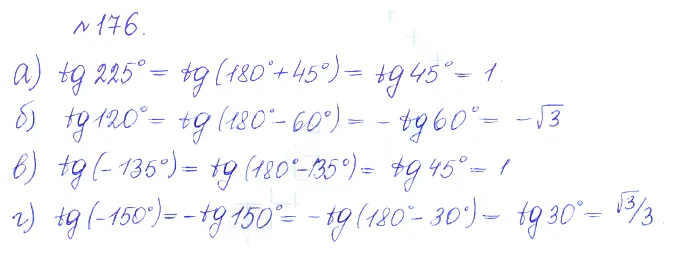 №176.
а) tg 225° = tg (180° + 45°) = tg 45° = 1
б) tg 120° = tg (180° - 60°) = - tg 60° = - √3
в) tg (-135°) = tg (180° - 135°) = tg 45° = 1
г) tg (-150°) = - tg 150° = - tg (180° - 30°) = tg 30° = √3/3.